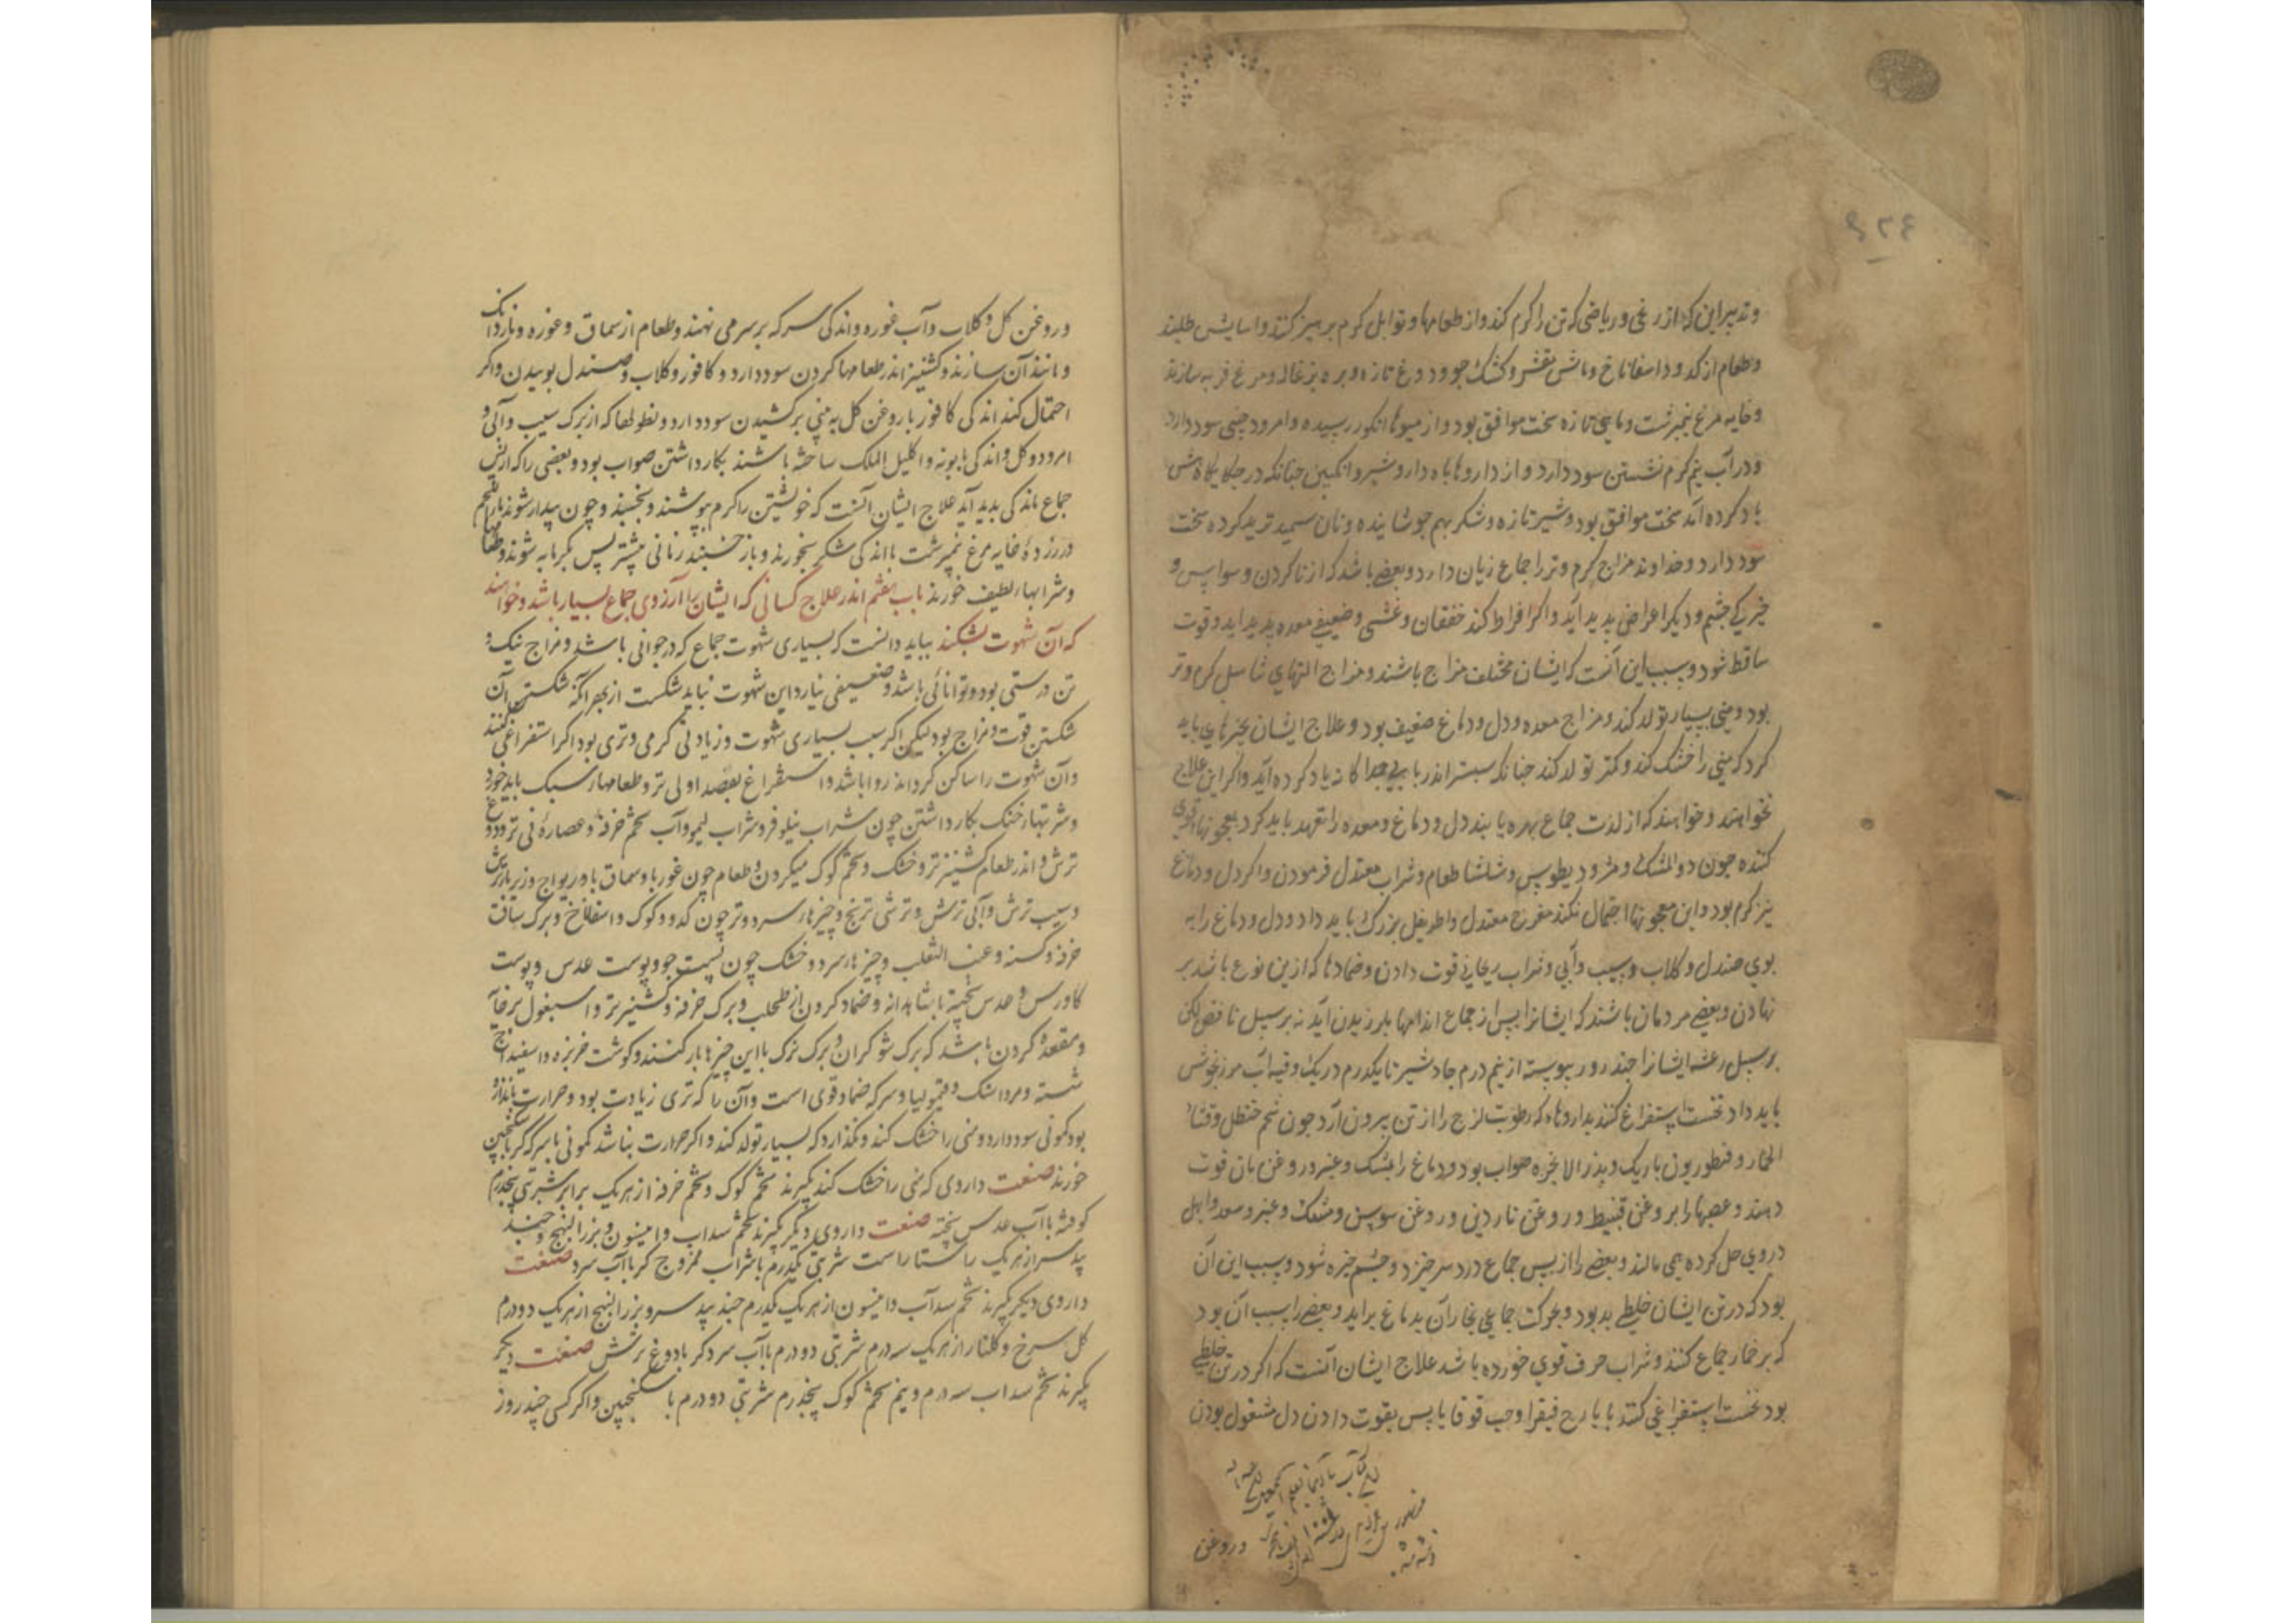 ۶۲۴
و تدبیر این که از رغی و ریاضی که تن را کرم کند و از طعامها و توابل کرم پرهیز کنند و اسایش طلبند
و طعام از کدو و اسفاناخ و ماش مقشر و کشک جو و دوغ تازه و بره بزغاله و مرغ فربه سازند
و خایه مرغ نیمبرشت و ماهی تازه سخت موافق بود و از میوها انکور رسیده و امرود چینی سود دارد
و در آب نیم کرم نشستن سود دارد و از داروها باه دارو شیر و انکبین چنانکه در جایکاهش
یاد کرده آند سخت موافق بود و شیر تازه و شکر بهم جوشانیده و نان سمید ترید کرده سخت
سود دارد و خداوند مزاج کرم و تر را جماع زیان دارد و بعضی باشد که از ناکردن وسواس و
خیرکی چشم و دیکر اعراض پدید آید و اکر افراط کند خفقان و غشی و ضعیفی معده پدید اید و قوت
ساقط شود و سبب این آنست که ایشان مختلف مزاج باشند و مزاج التهای تناسل کرم و تر
بود و منی بسیار تولد کند و مزاج معده و دل و دماغ ضعیف بود و علاج ایشان بچیزهای باید
کرد که منی را خشک کند و کمتر تولد کند چنانکه سپستر اندر بابی جداکانه یاد کرده آید و اکر این علاج
نخواهند و خواهند که از لذت جماع بهره یابند دل و دماغ و معده را تعهد باید کرد بمعجونهاء قوی
کننده چون دوا المشک و مثرودیطوس و شلشا و طعام و شراب معتدل فرمودن و اکر دل و دماغ
نیز کرم بود و این معجونها احتمال نکند مفرح معتدل و اطریفل بزرک باید داد و دل و دماغ را به
بوی صندل و کلاب و سیب و آبی و شراب ریحانی قوت دادن و ضمادها که ازین نوع باشد بر
نهادن و بعضی مردمان باشند که ایشانرا پس از جماع اندامها بلرزیدن آید نه بر سبیل نافض لکن
بر سبیل رعشه ایشانرا چند روز پیوسته از نیم درم جاوشیر تا یکدرم در یک وقیه آب مرزنجوش
باید داد نخست استفراغ کنند بداروهاء که رطوبت لزج را از تن بیرون آرد چون شحم حنظل و قثاء
الحمار و قنطوریون باریک و بذر الانجره صواب بود و دماغ را بمشک و عنبر و روغن بان قوت
دهند و عصبها را بروغن قسط و روغن ناردین و روغن سوسن و مشک و عنبر و سعد و ابهل
در وی حل کرده همی مالند و بعضی را از پس جماع درد سر خیزد و چشم خیره شود و سبب این آن
بود که در تن ایشان خلطی بد بود و بحرکت جماعی بخار آن بدماغ براید و بعضی را سبب آن بود
که بر خمار جماع کنند و شراب صرف قوی خورده باشد علاج ایشان آنست که اکر در تن خلطی
بود نخست استفراغی کنند بایارج فیقرا و حب قوقایا پس بقوت دادن دل مشغول بودن
و روغن
و روغن کل و کلاب و آب غوره و اندکی سرکه بر سر می نهند و طعام از سماق و غوره و ناردانک
و مانند آن سازند و کشنیز اندر طعامها کردن سود دارد و کافور و کلاب و صندل بوییدن و اکر
احتمال کند اندکی کافور با روغن کل به بینی بر کشیدن سود دارد و نطولها که از برک سیب و آبی و
امرود و کل و اندکی بابونه و اکلیل الملک ساخته باشند بکار داشتن صواب بود و بعضی را که از پس
جماع ماندکی پدید آید علاج ایشان آنست که خویشتن را کرم بپوشند و بخسبند و چون بیدار شوند
زرده خایه مرغ نیمبرشت با اندکی شکر بخورند و باز خسبند زمانی بیشتر پس بکرمابه شوند و طعامها
و شرابهاء لطیف خورند باب هفتم اندر علاج کسانی که ایشان را آرزوی جماع بسیار باشد و خواهند
که آن شهوت بشکند بباید دانست که بسیاری شهوت جماع که در جوانی باشد و مزاج نیک و
تن درستی بود و توانائی باشد و ضعیفی نیارد این شهوت نباید شکست از بهر آنکه شکستن آن
شکستن قوت و مزاج بود لیکن اکر سبب بسیاری شهوت و زیادتی کرمی و تری بود اکر استفراغی کنند
و آن شهوت را ساکن کردانند روا باشد و استفراغ بفصد اولی تر و طعامهاء سبک باید خورد
و شربتهاء خنک بکار داشتن چون شراب نیلوفر و شراب لیمو و آب تخم خرفه و عصاره نی تر و دوغ
ترش و اندر طعام کشنیز تر و خشک و تخم کوک میکردن و طعام چون غوربا و سماق با و ریواج و زیرباء ترش
و سیب ترش و آبی ترش و ترشی ترنج و چیزهاء سرد و تر چون کدو و کوک و اسفاناخ و برک
خرفه و کسنه و عنب الثعلب و چیزهاء سرد و خشک چون پست جو و پوست عدس و پوست
کاورس و عدس پخته با شاهدانه و ضماد کردن از طحلب و برک خرفه و کشنیز تر و اسبغول بر
و مقعده کردن باشد که برک شوکران و برک با این چیزها یار کنند و کوشت خربزه و اسفیداج
شسته و مرداسنک و قیمولیا و سرکه ضماد قوی است و آن را که تری زیادت بود و حرارت باندازه
بود کمونی سود دارد و منی را خشک کند و نکذارد که بسیار تولد کند و اکر حرارت بباشد کمونی با سرکه کر با سکنجبین
خورند صفت داروی که منی را خشک کند بکیرند تخم کوک و تخم خرفه از هر یک برابر شربتی پنجدرم
کوفته با آب عدس پخته صفت داروی دیکر بکیرند تخم سداب و انیسون و بزر البنج و جند
بیدستر از هر یک راستا راست شربتی یکدرم با شراب ممزوج کر با آب سرد صفت
داروی دیکر بکیرند تخم سداب و انیسون از هر یک یکدرم جند بیدستر و بزر البنج از هر یک دو درم
کل سرخ و کلنار از هر یک سه درم شربتی دو درم با آب سرد کر با دوغ ترش صفت دیکر
بکیرند تخم سداب سه درم و نیم تخم کوک پنجدرم شربتی دو درم با سکنجبین و اکر کسی چند روز